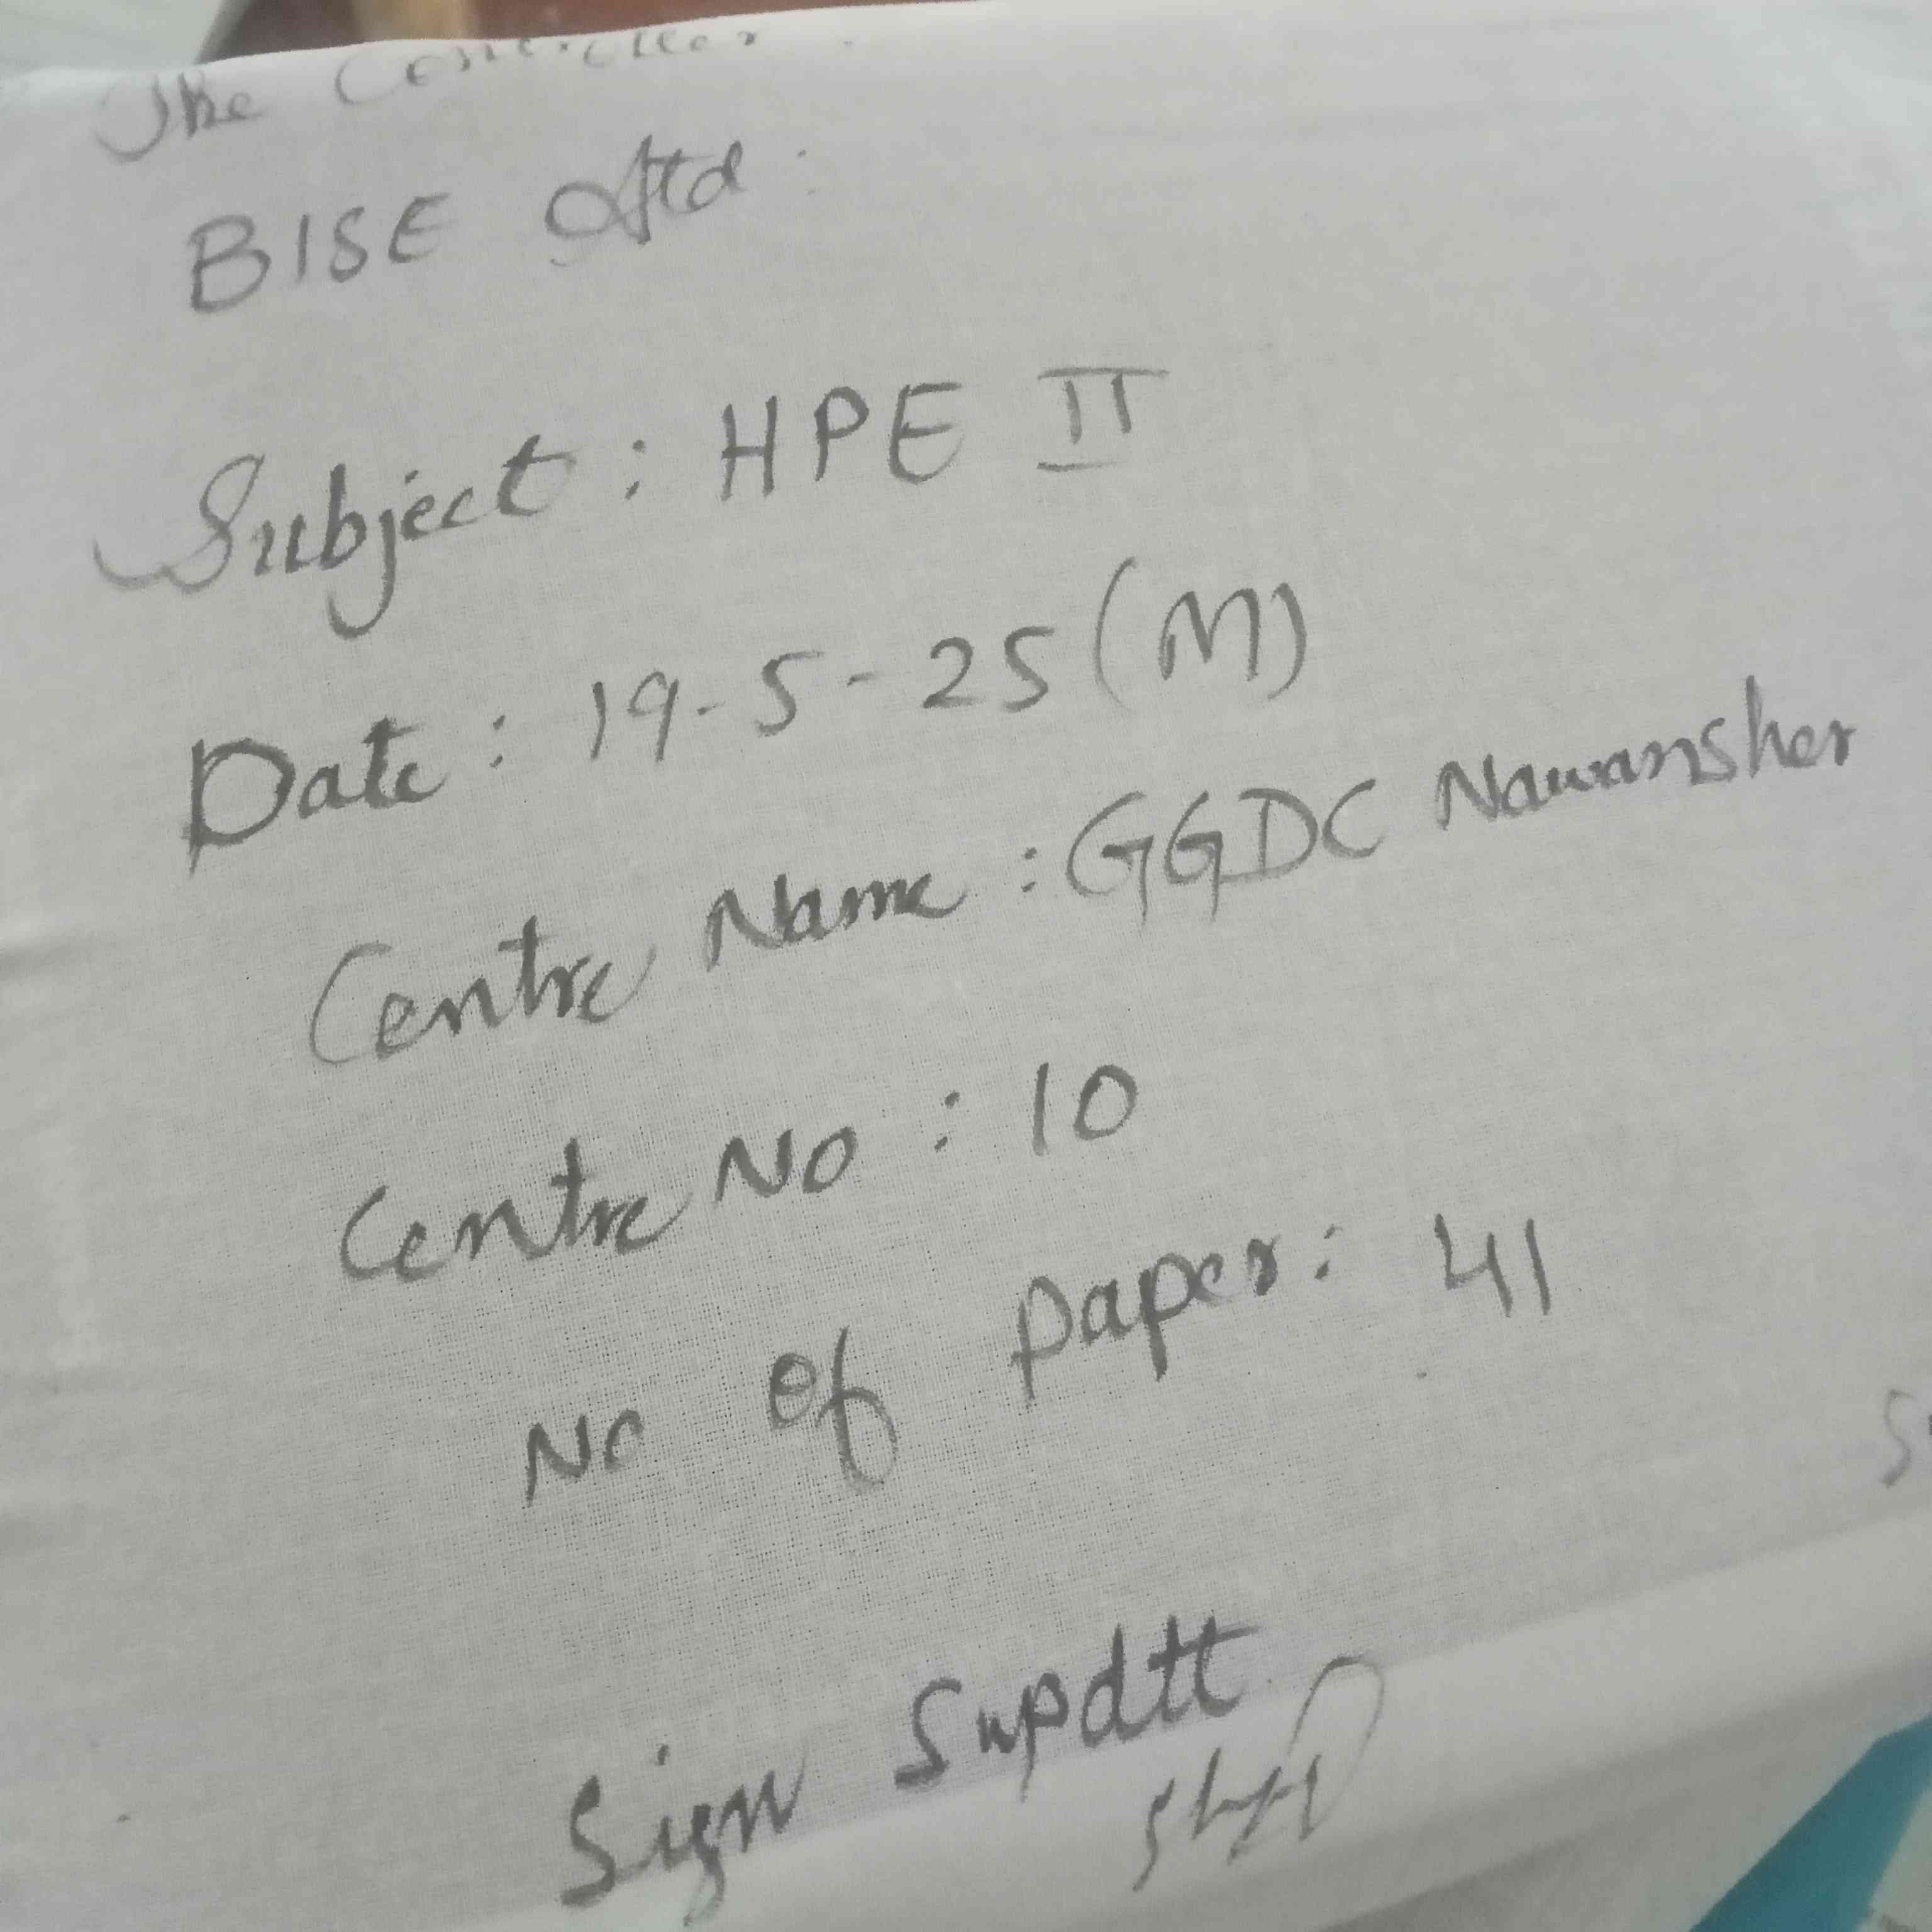 The Controller
BISE Atd:
Subject: HPE II
Date: 19-5-25 (M)
Centre Name: GGDC Nawansher
Centre No: 10
No of Paper: 41
Sign Supdtt